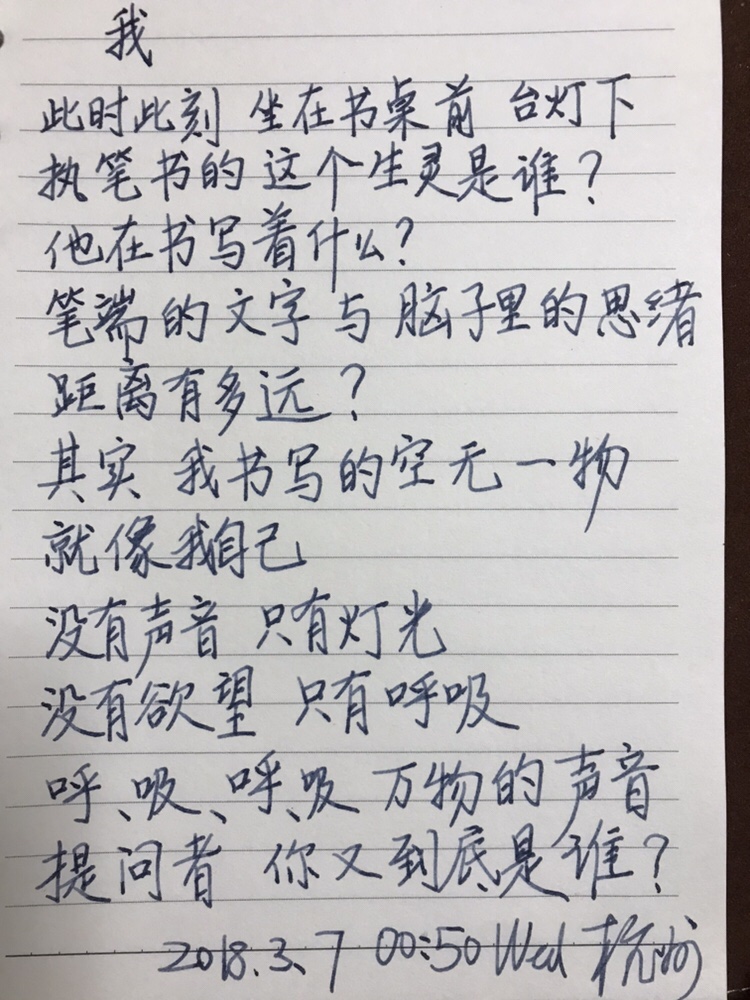 我
此时此刻 坐在书桌前 台灯下
执笔书的 这个生灵是谁？
他在书写着什么？
笔端的文字 与 脑子里的思绪
距离有多远？
其实 我书写的空无一物
就像我自己
没有声音 只有灯光
没有欲望 只有呼吸
呼、吸、呼、吸 万物的声音
提问者 你又到底是谁？
2018.3.7 00:50 Wed 杭州